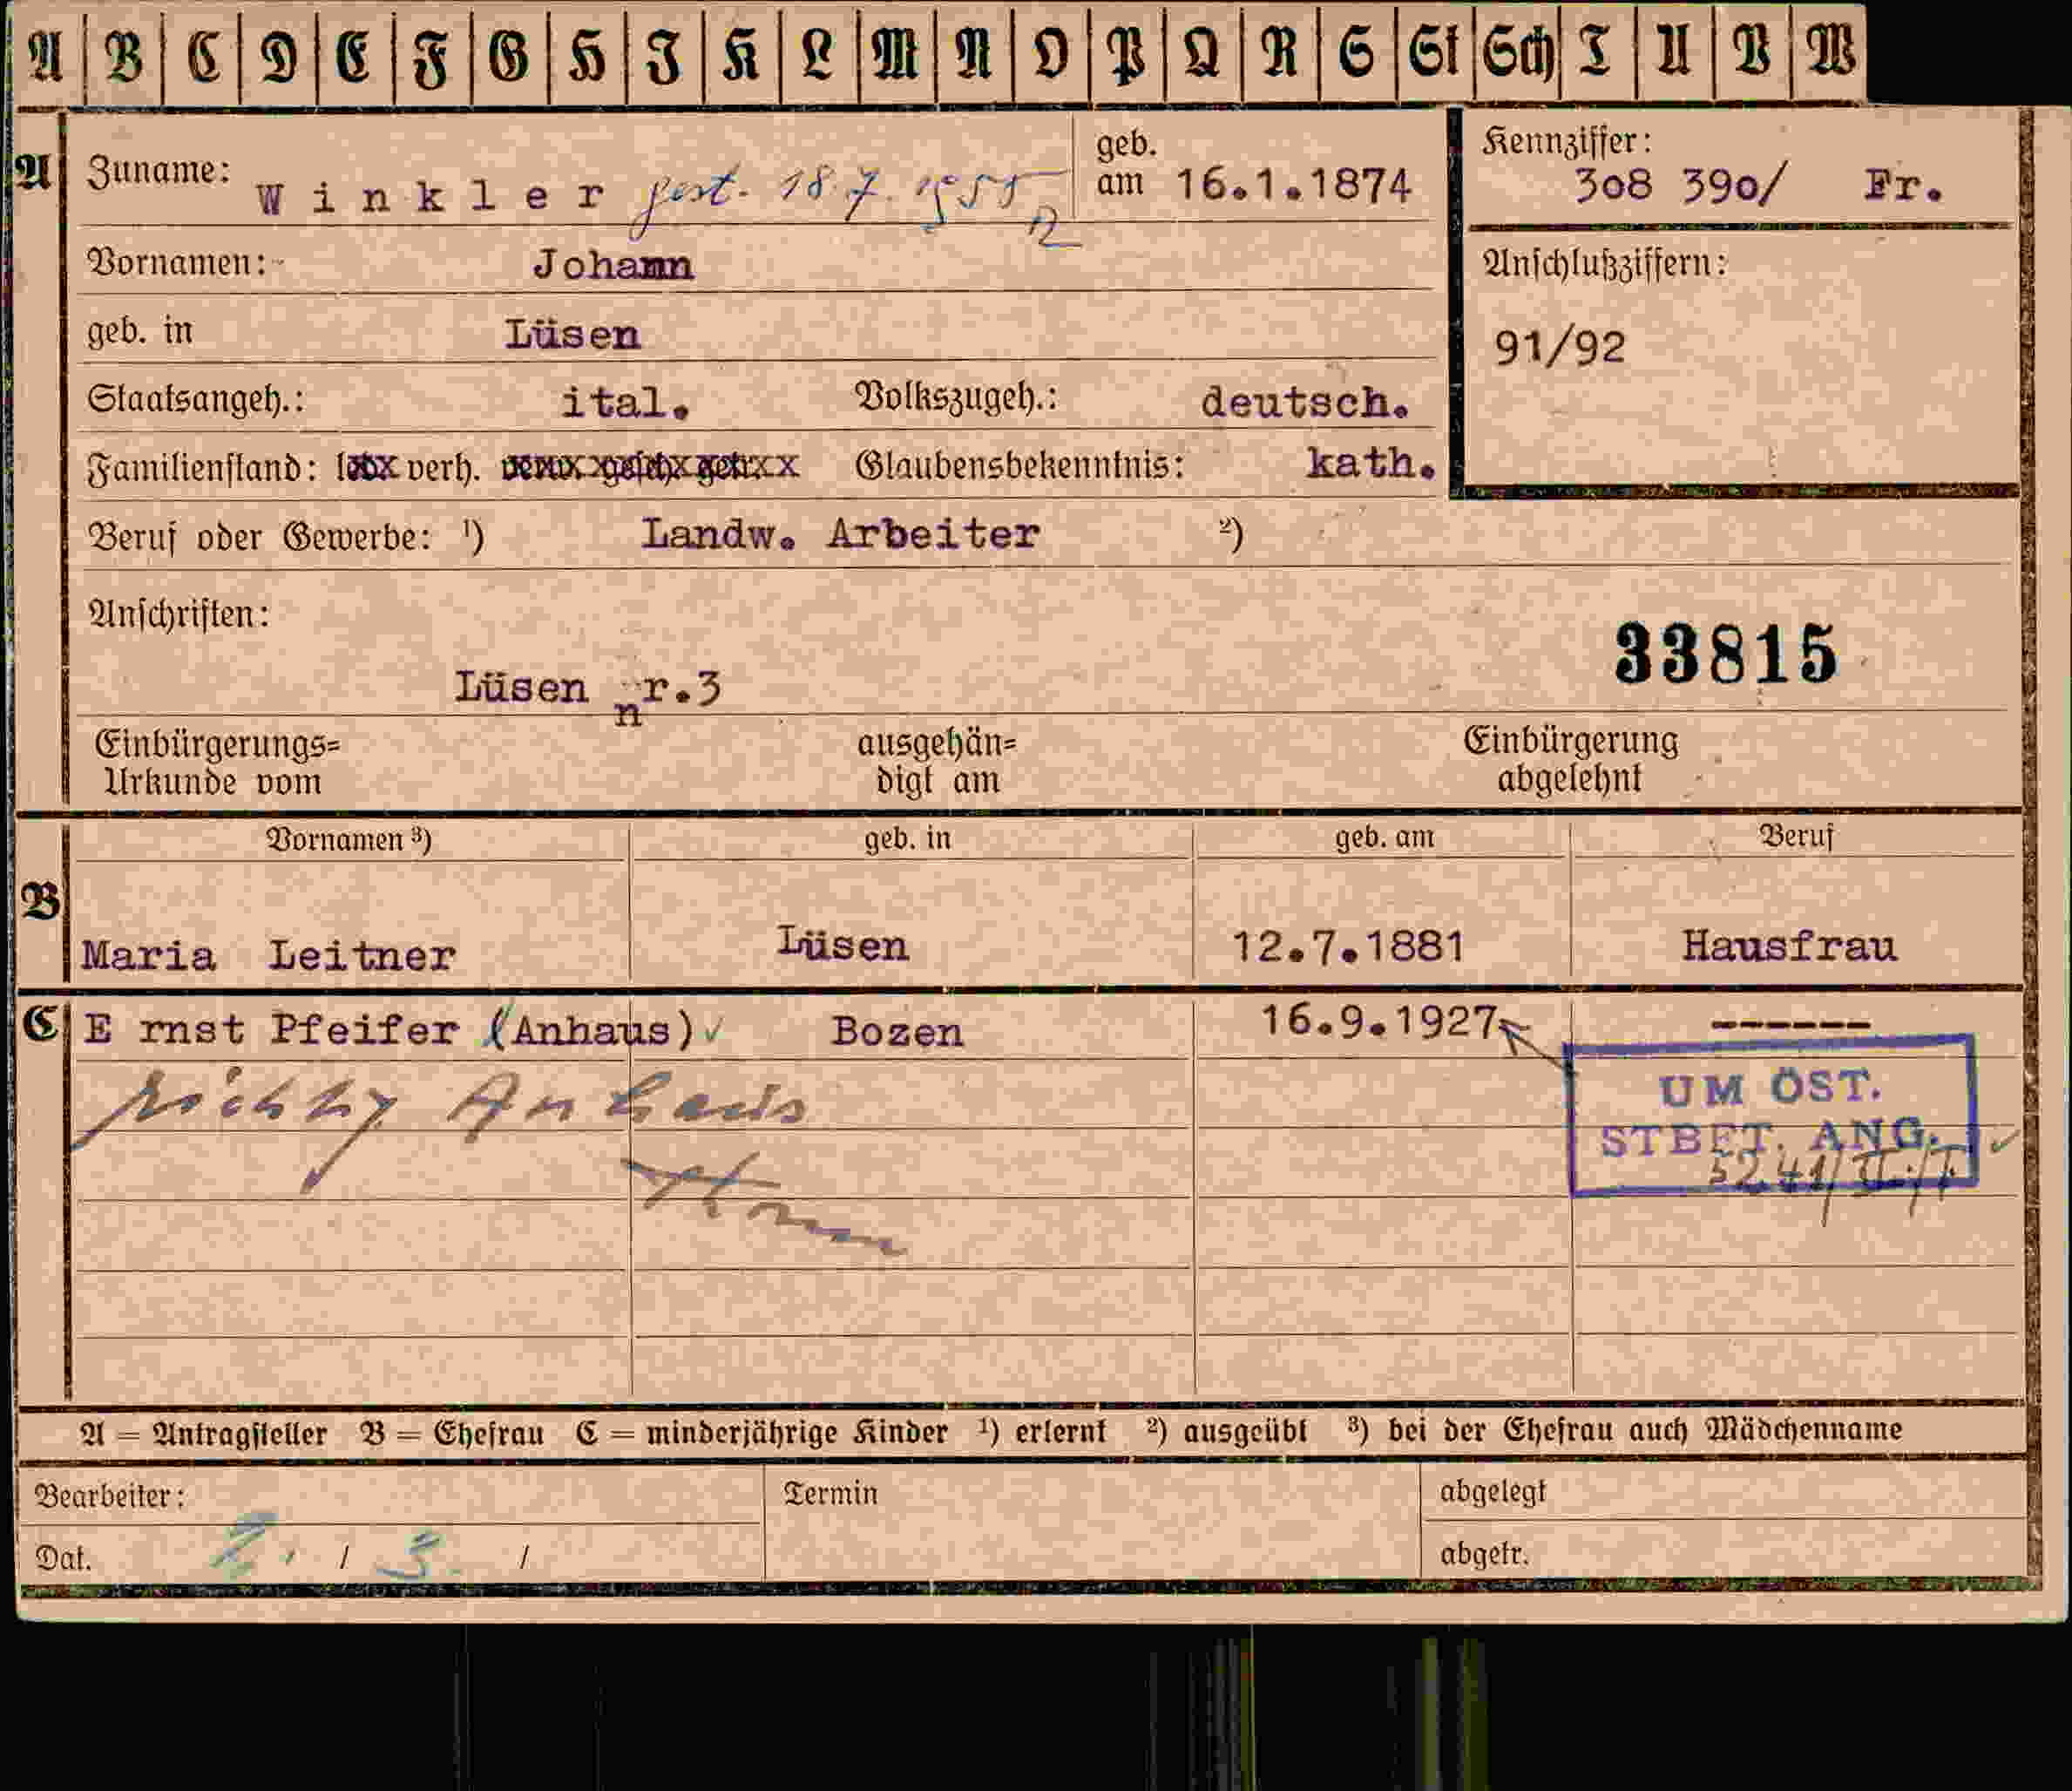 A B C D E F G H I K L M N O P Q R S St Sch T U V W
A Zuname: Winkler gest. 18.7.1955 geb. am 16.1.1874 Kennziffer: 308 390/ Fr.
Vornamen: Johann Anschlußziffern:
geb. in Lüsen 91/92
Staatsangeh.: ital. Volkszugeh.: deutsch.
Familienstand: verh. Glaubensbekenntnis: kath.
Beruf oder Gewerbe: ¹) Landw. Arbeiter ²)
Anschriften:
33815
Lüsen nr.3
Einbürgerungs= ausgehän= Einbürgerung
Urkunde vom digt am abgelehnt
Vornamen ³) geb. in geb. am Beruf
B Maria Leitner Lüsen 12.7.1881 Hausfrau
C E rnst Pfeifer (Anhaus) ✓ Bozen 16.9.1927 ------
richtig Anhaus
UM ÖST.
STBET. ANG. ✓
A = Antragsteller B = Ehefrau C = minderjährige Kinder ¹) erlernt ²) ausgeübt ³) bei der Ehefrau auch Mädchenname
Bearbeiter: Termin abgelegt
Dat. 2. / 3. / abgetr.